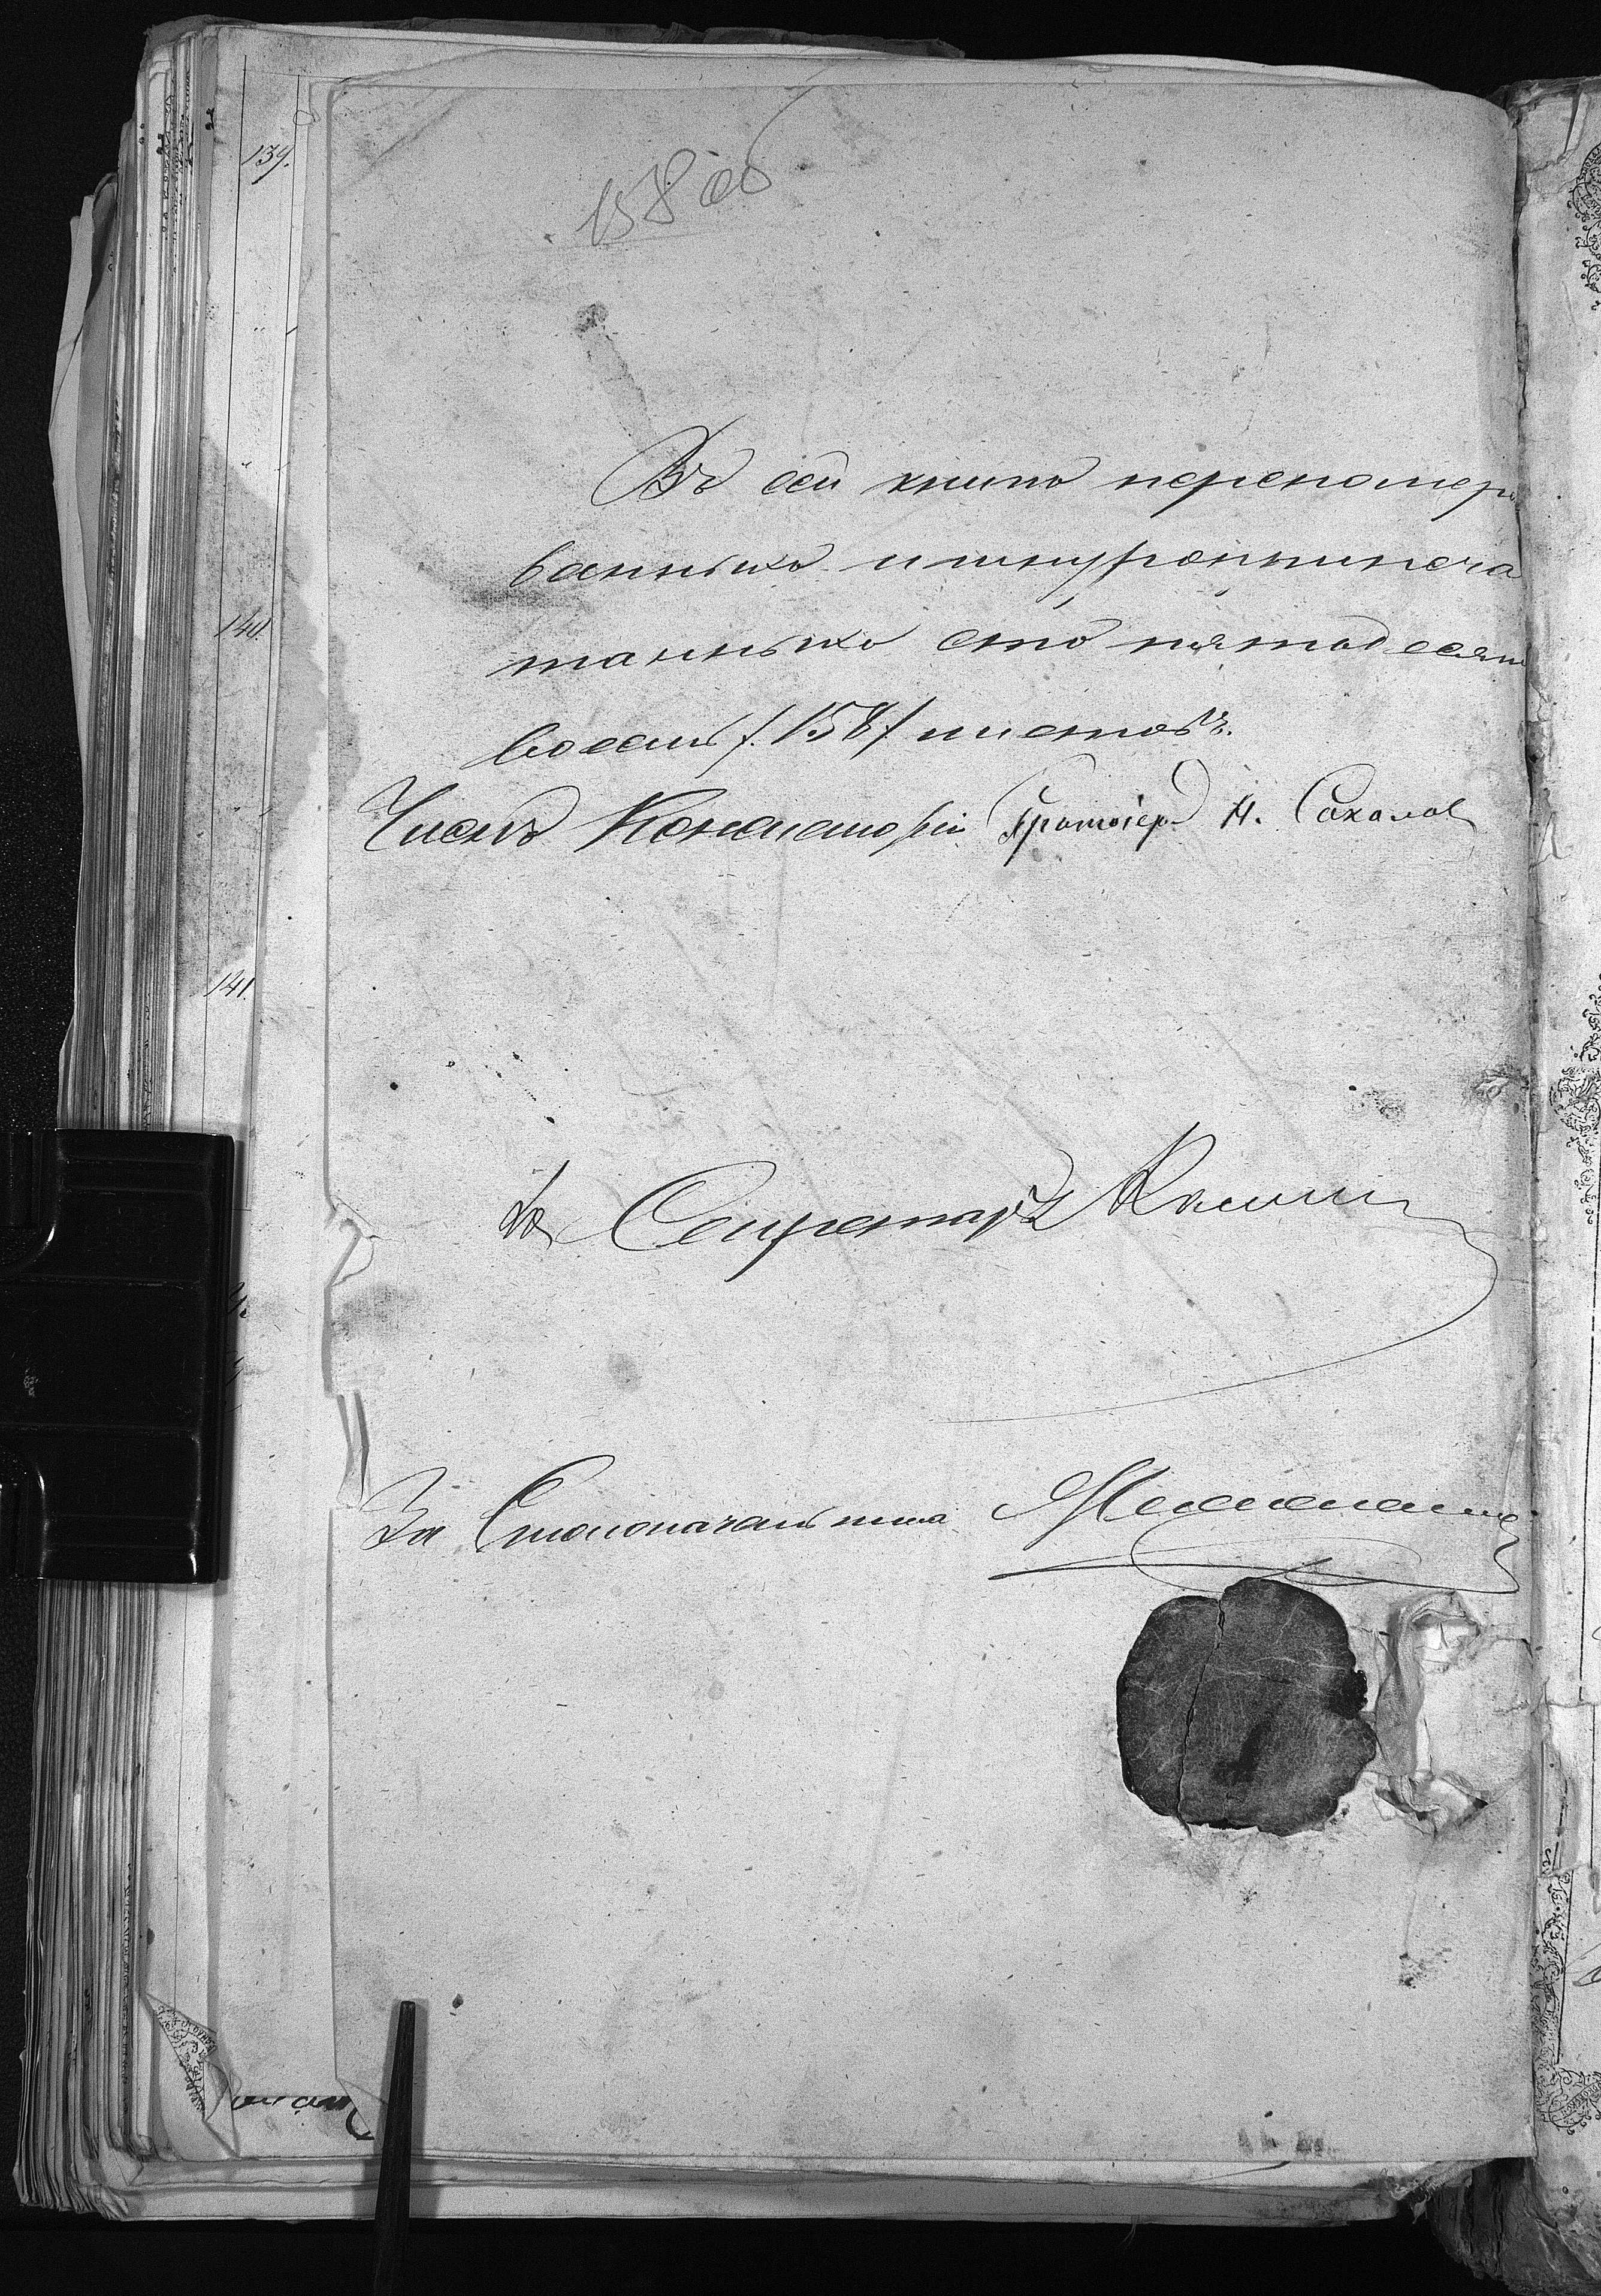 139.
158 об
Въ сей книгѣ перенумеро
ванныхъ и шнуроприпеча
140.
танныхъ сто пятьдесятъ
восемь /.158/. листовъ.
Членъ Консисторіи Протоіер. Н. Соколов
141.
Секретарь
За Столоначальника